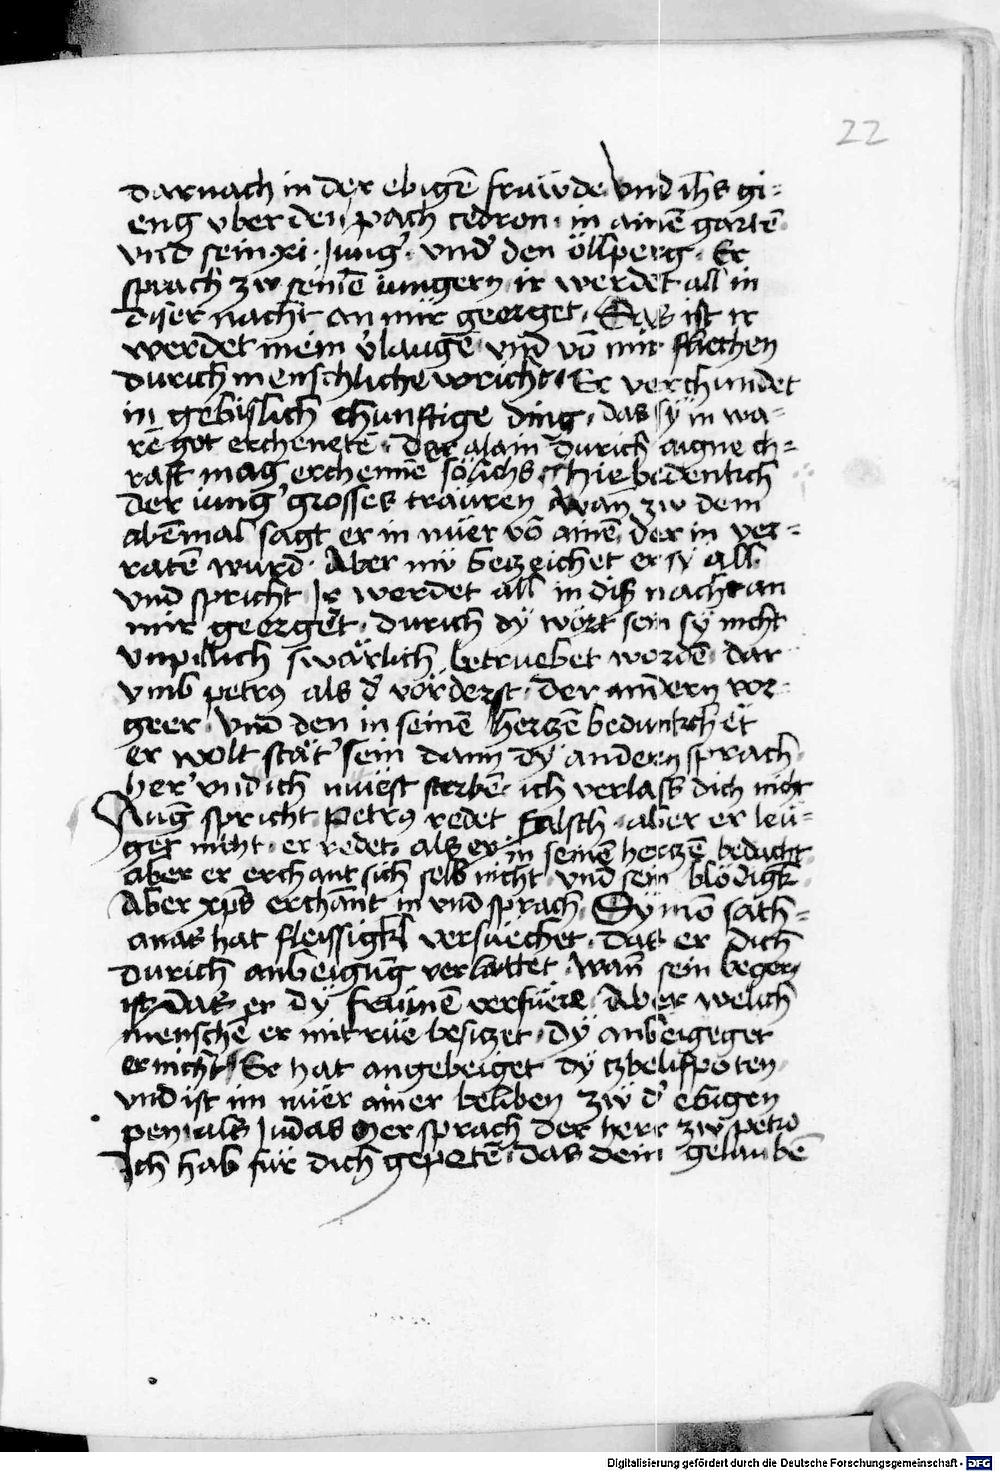 22
darnach in der ebigē frawde vnd ihs gi=
eng vber den pach cedron · in ainē gartē
vnd sein xi · Jung' · vnd' den öllperg · Er
sprach zw seinē iungern ir werdet all in
diser nacht an mir georget · Das ist ir
werdet mein v'laugē vnd vō mir fliechen
durich menschliche voricht · Er verchundet
in gebislich chunftige ding · das sy in wa=
rē got erchenetē · der alain durich aigne ch=
raft mag erchenne sölichs hie bedentkch
der iung' grosses trauren wan zw dem
abēmal sagt er in nüer vō ainē der in ver=
ratē wurd · Aber nw beczeichet er sy all
vnd spricht Jr werdet all in diß nacht an
mir georget · durich dy wört sein sy nicht
vnpillich swärlich betruebet wordē dar
vmb petrus als d' vörderst · der andern vor=
geer vnd den in seinē herczē beduncket
er wolt stät' sein dann dy andern sprach
her' vnd ich müest sterbē · ich verlass dich nicht
Aug spricht Petrus redet falsch · aber er leu=
get nicht · er redet als er in seinē herczē bedacht
aber er erchant sich selb nicht vnd sein blödigk
Aber xpūs erchant in vnd sprach Symō sath=
anas hat fleissigkl versuechet · das er dich
durich anbeigūg verlaittet · wan sein beger
ist das er dy frumē verfüere · Aber welich
menschē er mit rue besiczet · dy anbeigeget
er nicht · Er hat angebeiget dy czbelifpoten
vnd ist im nüer ainer beliben zw d' ebigen
pen als Judas Der sprach der herr zw petro
Ich hab für dich gepetē · das dein gelaubē
Digitalisierung gefördert durch die Deutsche Forschungsgemeinschaft - DFG